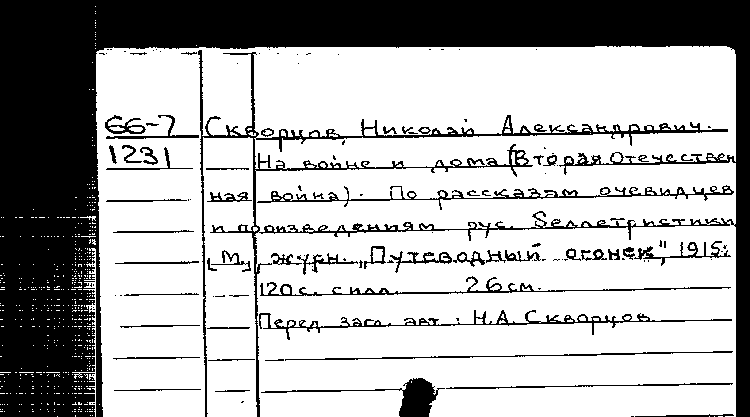 66-7 Скворцов, Николай Александрович.
1231 На войне и дома (Вторая Отечествен
ная война). По рассказам очевидцев
и произведениям рус. беллетристики
[М.], журн. „Путеводный огонек", 1915.
120 с. с илл. 26 см.
Перед загл. авт.: Н.А. Скворцов